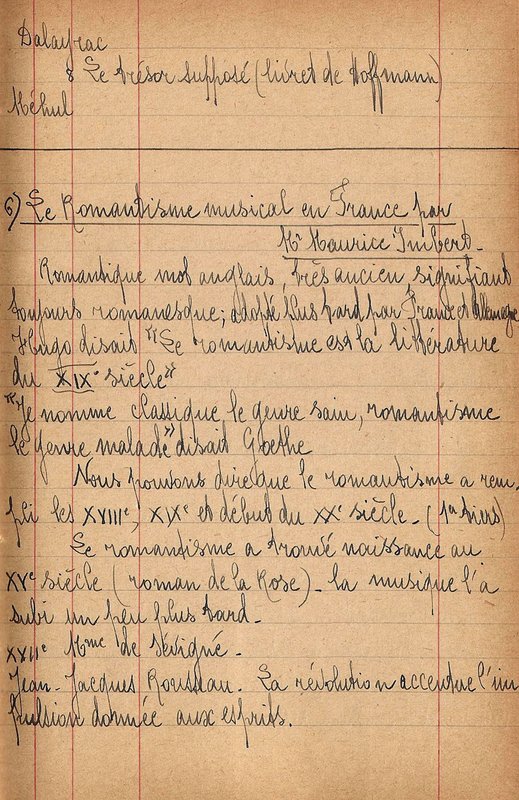 Dalayrac
& Le trésor supposé (livret de Hoffmann)
Méhul
6) Le Romantisme musical en France par
Mr Maurice Imbert.
Romantique mot anglais, très ancien signifiant
toujours romanesque; adopté plus tard par France et Allemagne
Hugo disait "Le romantisme est la littérature
du XIXe siècle"
"Je nomme classique le genre sain, romantisme
le genre malade" disait Goethe
Nous pouvons dire que le romantisme a rem-
pli les XVIIIe, XIXe et début du XXe siècle. (1er tiers)
Le romantisme a trouvé naissance au
XVe siècle (roman de la Rose). la musique l'a
subi un peu plus tard.
XXIIe Mme de Sévigné.
Jean-Jacques Rousseau. La révolution accentue l'im
pulsion donnée aux esprits.